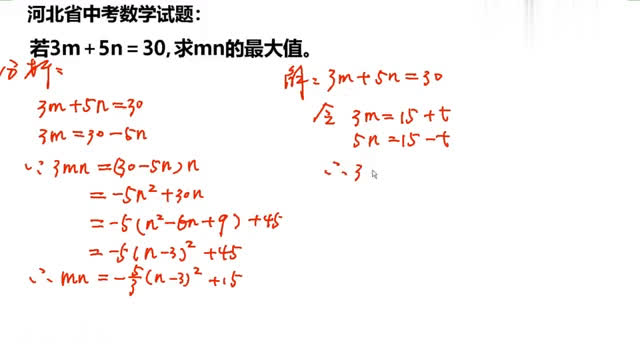 河北省中考数学试题:
若3m+5n=30,求mn的最大值。
分析:
3m+5n=30
3m=30-5n
∵ 3mn=(30-5n)n
=-5n²+30n
=-5(n²-6n+9)+45
=-5(n-3)²+45
∴ mn=-5/3(n-3)²+15
解:3m+5n=30
令 3m=15+t
5n=15-t
∴ 3